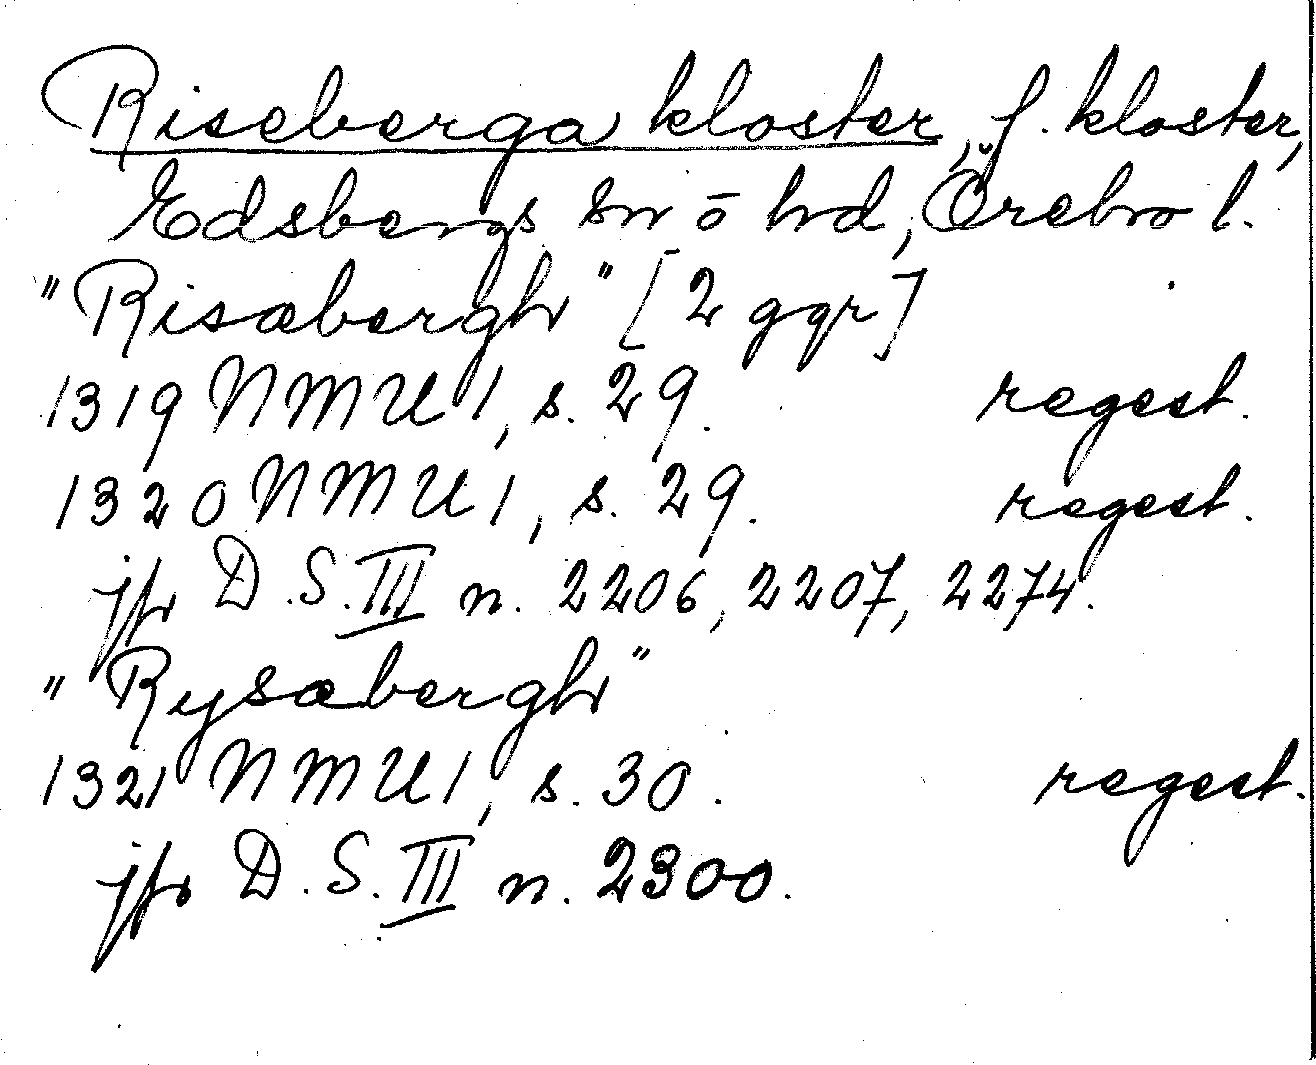 Riseberga kloster, f. kloster,
Edsbergs sn o hd, Örebro l.
"Risæbergh" [2 ggr]
1319 NMU 1, s. 29. regest.
1320 NMU 1, s. 29. regest.
jfr D.S. III n. 2206, 2207, 2274.
"Rysæbergh"
1321 NMU 1, s. 30. regest.
jfr D.S. III n. 2300.